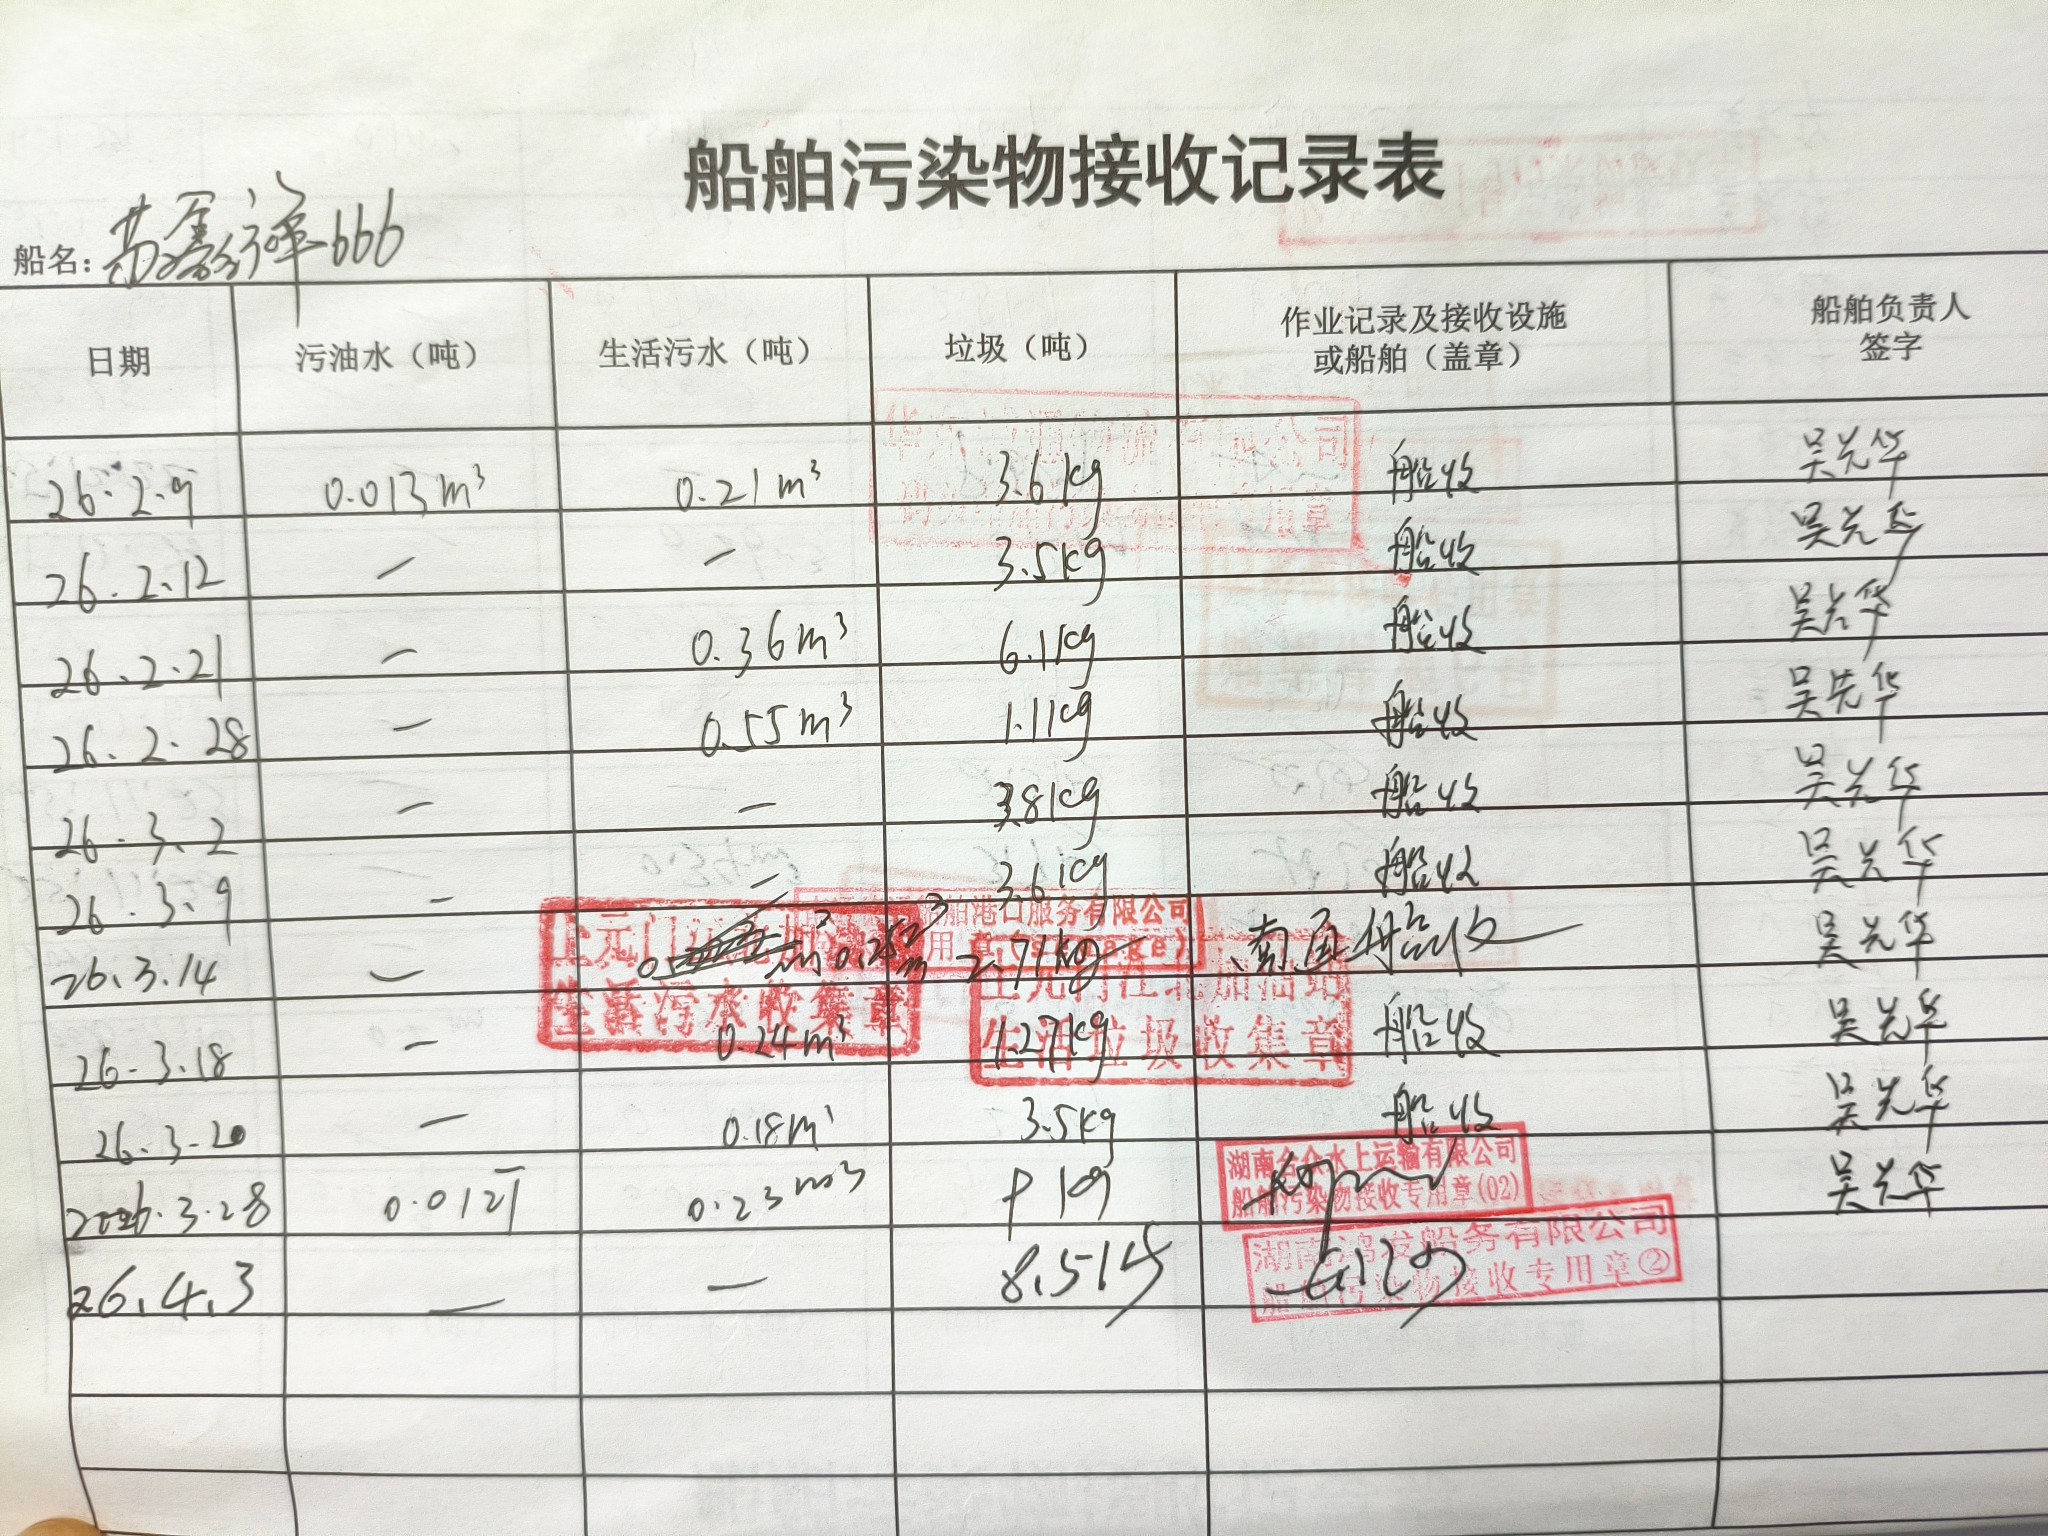 船舶污染物接收记录表
船名：鑫祥666
日期 污油水（吨） 生活污水（吨） 垃圾（吨） 作业记录及接收设施或船舶（盖章） 船舶负责人签字
26.2.9 0.013m³ 0.21m³ 3.6kg 船收 吴先华
26.2.12 — — 3.5kg 船收 吴先华
26.2.21 — 0.36m³ 6.1kg 船收 吴先华
26.2.28 — 0.55m³ 1.1kg 船收 吴先华
26.3.2 — — 8kg 船收 吴先华
26.3.9 - — 3.6kg 船收 吴先华
船舶港口服务有限公司
26.3.14 — 0.25m³ 2.71kg 船收 吴先华
上元门
生活污水收集章
上元门江北加油站
生活垃圾收集章
26.3.18 — 0.24m³ 1.27kg 船收 吴先华
26.3.20 — 0.18m³ 3.5kg 船收 吴先华
湖南合众水上运输有限公司
船舶污染物接收专用章(02)
2026.3.28 0.012 0.23 kg 吴先华
湖南鸿发船务有限公司
船舶污染物接收专用章②
26.4.3 — — 8.5